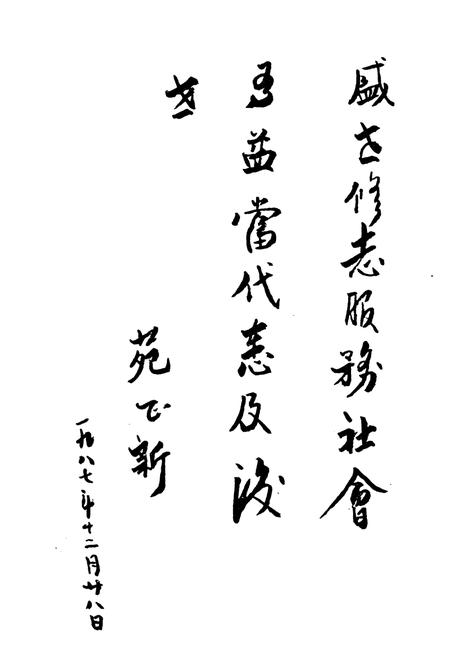 盛世修志服務社會
有益當代惠及後
世
苑正新
一九八七年十二月廿八日